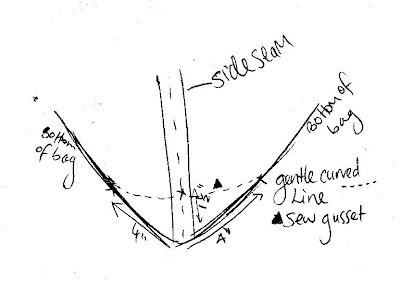 side seam
Bottom
of bag
Bottom of
bag
gentle curved
Line
▲ Sew gusset
1½"
4"
4"